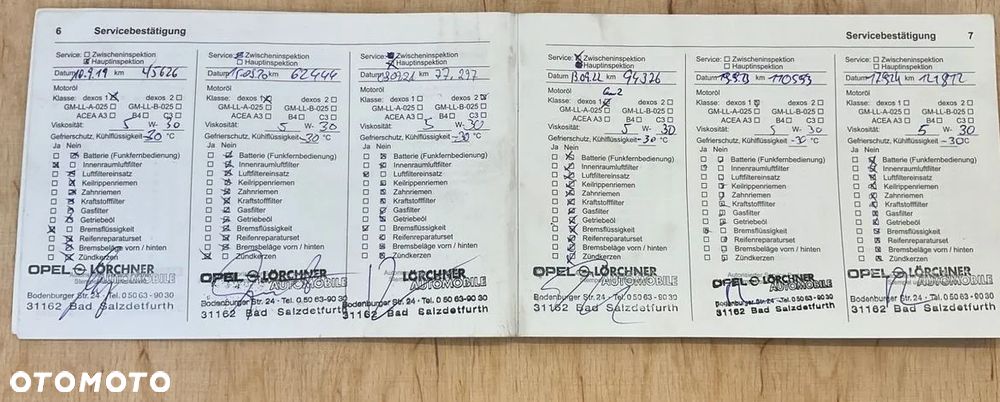 6 Servicebestätigung
Service: Zwischeninspektion
Hauptinspektion
Datum 10.9.19 km 45626
Motoröl
Klasse: dexos 1 dexos 2
GM-LL-A-025 GM-LL-B-025
ACEA A3 B4 C3
Viskosität: 5 W- 30
Gefrierschutz, Kühlflüssigkeit -30 °C
Ja Nein
Batterie (Funkfernbedienung)
Innenraumluftfilter
Luftfiltereinsatz
Keilrippenriemen
Zahnriemen
Kraftstofffilter
Gasfilter
Getriebeöl
Bremsflüssigkeit
Reifenreparaturset
Bremsbeläge vorn / hinten
Zündkerzen
OPEL LÖRCHNER
AUTOMOBILE
Bodenburger Str. 24 - Tel. 0 50 63 - 90 30
31162 Bad Salzdetfurth
Service: Zwischeninspektion
Hauptinspektion
Datum km 62444
Klasse: dexos 1 dexos 2
GM-LL-A-025 GM-LL-B-025
ACEA A3 B4 C3
Viskosität: 5 W- 30
Gefrierschutz, Kühlflüssigkeit -30 °C
Ja Nein
Batterie (Funkfernbedienung)
Innenraumluftfilter
Luftfiltereinsatz
Keilrippenriemen
Zahnriemen
Kraftstofffilter
Gasfilter
Getriebeöl
Bremsflüssigkeit
Reifenreparaturset
Bremsbeläge vorn / hinten
Zündkerzen
OPEL LÖRCHNER
AUTOMOBILE
Bodenburger Str. 24 - Tel. 0 50 63 - 90 30
31162 Bad Salzdetfurth
Service: Zwischeninspektion
Hauptinspektion
Datum km 77.297
Motoröl
Klasse: dexos 1 dexos 2
GM-LL-A-025 GM-LL-B-025
ACEA A3 B4 C3
Viskosität: 5 W- 30
Gefrierschutz, Kühlflüssigkeit -30 °C
Ja Nein
Batterie (Funkfernbedienung)
Innenraumluftfilter
Luftfiltereinsatz
Keilrippenriemen
Zahnriemen
Kraftstofffilter
Gasfilter
Getriebeöl
Bremsflüssigkeit
Reifenreparaturset
Bremsbeläge vorn / hinten
Zündkerzen
OPEL LÖRCHNER
AUTOMOBILE
Bodenburger Str. 24 - Tel. 0 50 63 - 90 30
31162 Bad Salzdetfurth
Servicebestätigung 7
Service: Zwischeninspektion
Hauptinspektion
Datum 130922 km 94326
Motoröl
Klasse: dexos 1 dexos 2
GM-LL-A-025 GM-LL-B-025
ACEA A3 B4 C3
Viskosität: 5 W- 30
Gefrierschutz, Kühlflüssigkeit -30 °C
Ja Nein
Batterie (Funkfernbedienung)
Innenraumluftfilter
Luftfiltereinsatz
Keilrippenriemen
Zahnriemen
Kraftstofffilter
Gasfilter
Getriebeöl
Bremsflüssigkeit
Reifenreparaturset
Bremsbeläge vorn / hinten
Zündkerzen
OPEL LÖRCHNER
AUTOMOBILE
Bodenburger Str. 24 - Tel. 0 50 63 - 90 30
31162 Bad Salzdetfurth
Service: Zwischeninspektion
Hauptinspektion
Datum km 110593
Motoröl
Klasse: dexos 1 dexos 2
GM-LL-A-025 GM-LL-B-025
ACEA A3 B4 C3
Viskosität: 5 W- 30
Gefrierschutz, Kühlflüssigkeit -30 °C
Ja Nein
Batterie (Funkfernbedienung)
Innenraumluftfilter
Luftfiltereinsatz
Keilrippenriemen
Zahnriemen
Kraftstofffilter
Gasfilter
Getriebeöl
Bremsflüssigkeit
Reifenreparaturset
Bremsbeläge vorn / hinten
Zündkerzen
OPEL LÖRCHNER
AUTOMOBILE
Bodenburger Str. 24 - Tel. 0 50 63 - 90 30
31162 Bad Salzdetfurth
Service: Zwischeninspektion
Hauptinspektion
Datum km
Motoröl
Klasse: dexos 1 dexos 2
GM-LL-A-025 GM-LL-B-025
ACEA A3 B4 C3
Viskosität: 5 W- 30
Gefrierschutz, Kühlflüssigkeit -30 °C
Ja Nein
Batterie (Funkfernbedienung)
Innenraumluftfilter
Luftfiltereinsatz
Keilrippenriemen
Zahnriemen
Kraftstofffilter
Gasfilter
Getriebeöl
Bremsflüssigkeit
Reifenreparaturset
Bremsbeläge vorn / hinten
Zündkerzen
OPEL LÖRCHNER
AUTOMOBILE
Bodenburger Str. 24 - Tel. 0 50 63 - 90 30
31162 Bad Salzdetfurth
OTOMOTO